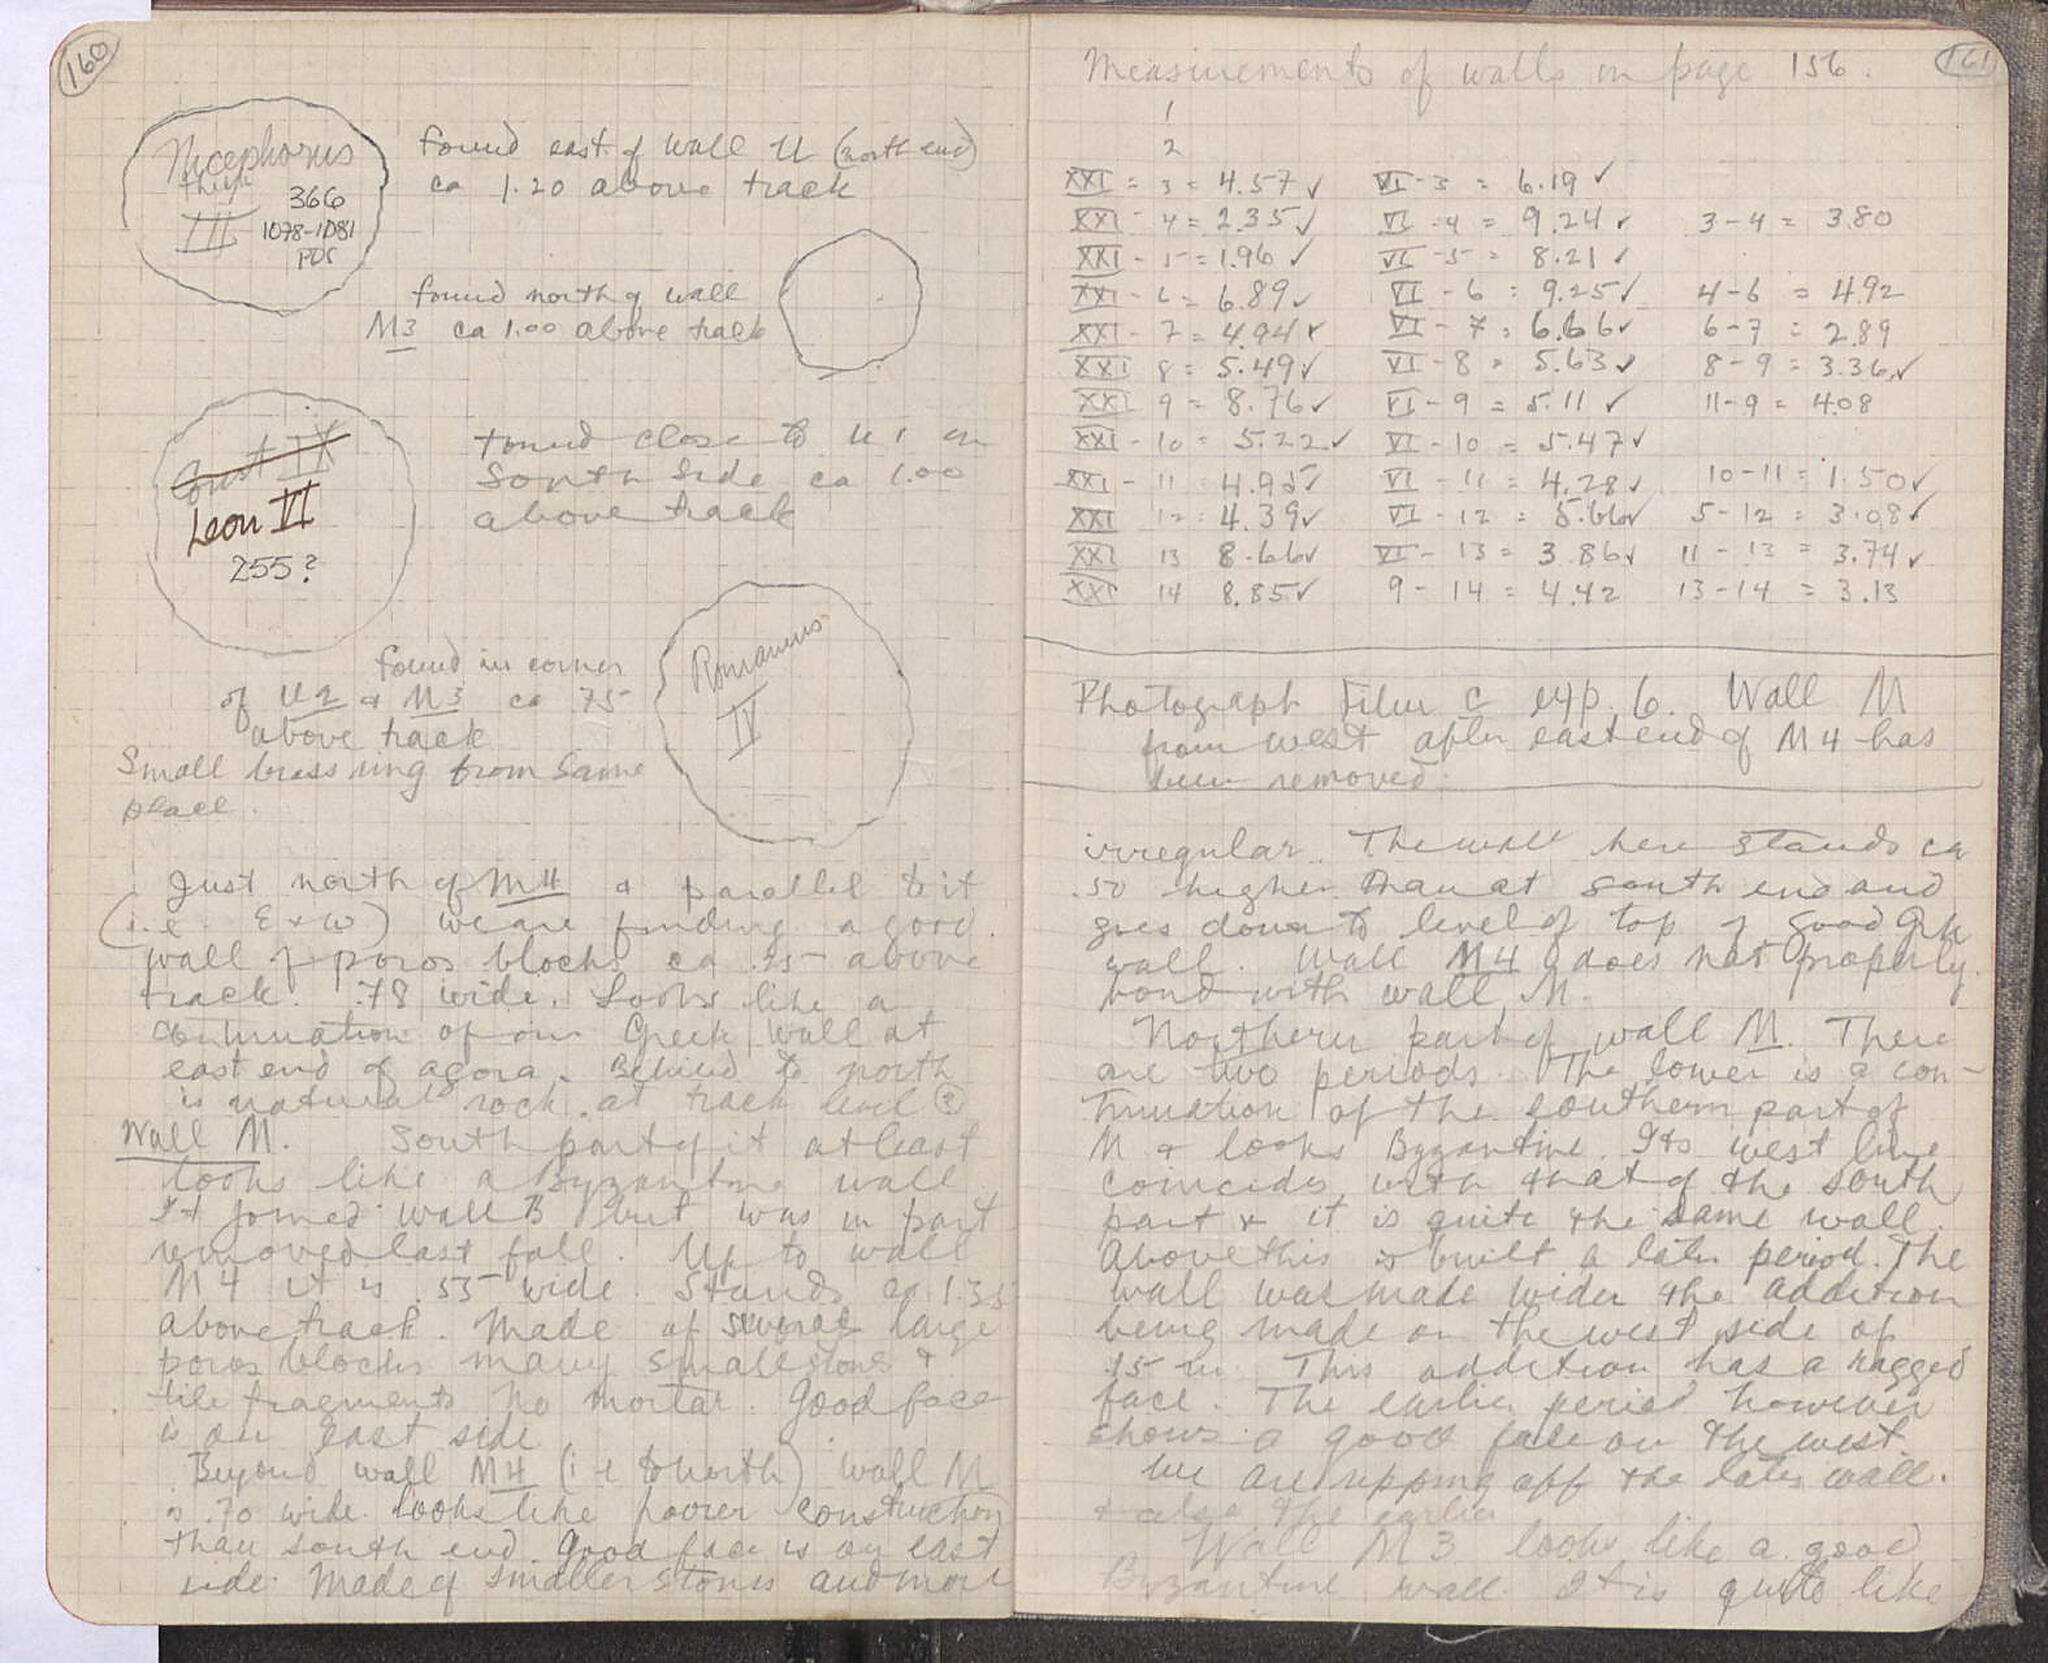 160
Nicephorus
III
366
1078-1081
found east of wall U (north end)
ca 1.20 above track
found north of wall
M3 ca 1.00 above track
Const IX
Leon VI
255?
found close to U1 on
south side ca 1.00
above track
found in corner
of U2 & M3 ca 75
above track
Romanus
IV
Small brass ring from same
place.
Just north of M4 & parallel to it
(i.e. E & W) we are finding a good
wall of poros blocks ca .75 above
track. .78 wide. Looks like a
continuation of our Greek wall at
east end of agora. Behind to north
is natural rock at track level (?)
Wall M. South part of it at least
looks like a Byzantine wall
It joined wall B but was in part
removed last fall. Up to wall
M4 it is .55 wide. Stands ca 1.35
above track. Made of several large
poros blocks many small stones &
tile fragments no mortar. Good face
is on east side
Beyond wall M4 (i.e. to north) wall M
is .70 wide. Looks like poorer construction
than south end. Good face is on east
side. Made of smaller stones and more
161
Measurements of walls on page 156.
1
2
XXI = 3 = 4.57 ✓ VI - 3 = 6.19 ✓
XXI - 4 = 2.35 ✓ VI - 4 = 9.24 ✓ 3-4 = 3.80
XXI - 5 = 1.96 ✓ VI - 5 = 8.21 ✓
XXI - 6 = 6.89 ✓ VI - 6 = 9.25 ✓ 4-6 = 4.92
XXI - 7 = 4.94 ✓ VI - 7 = 6.66 ✓ 6-7 = 2.89
XXI 8 = 5.49 ✓ VI - 8 = 5.63 ✓ 8-9 = 3.36 ✓
XXI 9 = 8.76 ✓ VI - 9 = 5.11 ✓ 11-9 = 4.08
XXI - 10 = 5.22 ✓ VI - 10 = 5.47 ✓
XXI - 11 = 4.95 ✓ VI - 11 = 4.28 ✓ 10-11 = 1.50 ✓
XXI 12 = 4.39 ✓ VI - 12 = 5.66 ✓ 5-12 = 3.08 ✓
XXI 13 8.66 ✓ VI - 13 = 3.86 ✓ 11-13 = 3.74 ✓
XXI 14 8.85 ✓ 9-14 = 4.42 13-14 = 3.13
Photograph Film C exp. 6. Wall M
from west after east end of M4 has
been removed.
irregular. The wall here stands ca
.50 higher than at south end and
goes down to level of top of good Grk
wall. Wall M4 does not properly
bond with wall M.
Northern part of wall M. There
are two periods. The lower is a con-
tinuation of the southern part of
M & looks Byzantine. Its west line
coincides with that of the south
part & it is quite the same wall.
Above this is built a later period. The
wall was made wider the addition
being made on the west side of
.15 m. This addition has a ragged
face. The earlier period however
shows a good face on the west.
We are ripping off the later wall.
& also the earlier
Wall M3 looks like a good
Byzantine wall. It is quite like